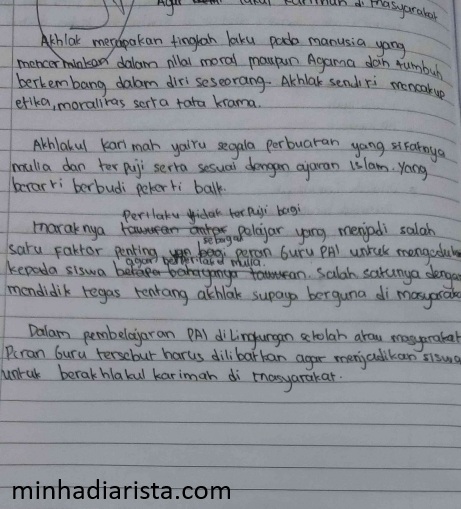 di masyarakat
Akhlak merupakan tingkah laku pada manusia yang
mencerminkan dalam nilai moral maupun Agama dan tumbuh
berkembang dalam diri seseorang. Akhlak sendiri mencakup
etika, moralitas serta tata krama.
Akhlakul karimah yaitu segala perbuatan yang sifatnya
mulia dan terpuji serta sesuai dengan ajaran islam. yang
berarti berbudi pekerti baik.
Perilaku tidak terpuji bagi
Maraknya tawuran antar pelajar yang menjadi salah
sebagai
satu faktor penting bagi peran Guru PAI untuk
agar berperilaku mulia.
kepada siswa betapa bahayanya tawuran. Salah satunya dengan
mendidik tegas tentang akhlak supaya berguna di masyarakat
Dalam pembelajaran PAI di Lingkungan sekolah atau masyarakat
Peran Guru tersebut harus dilibatkan agar menjadikan siswa
untuk berakhlakul karimah di masyarakat.
minhadiarista.com